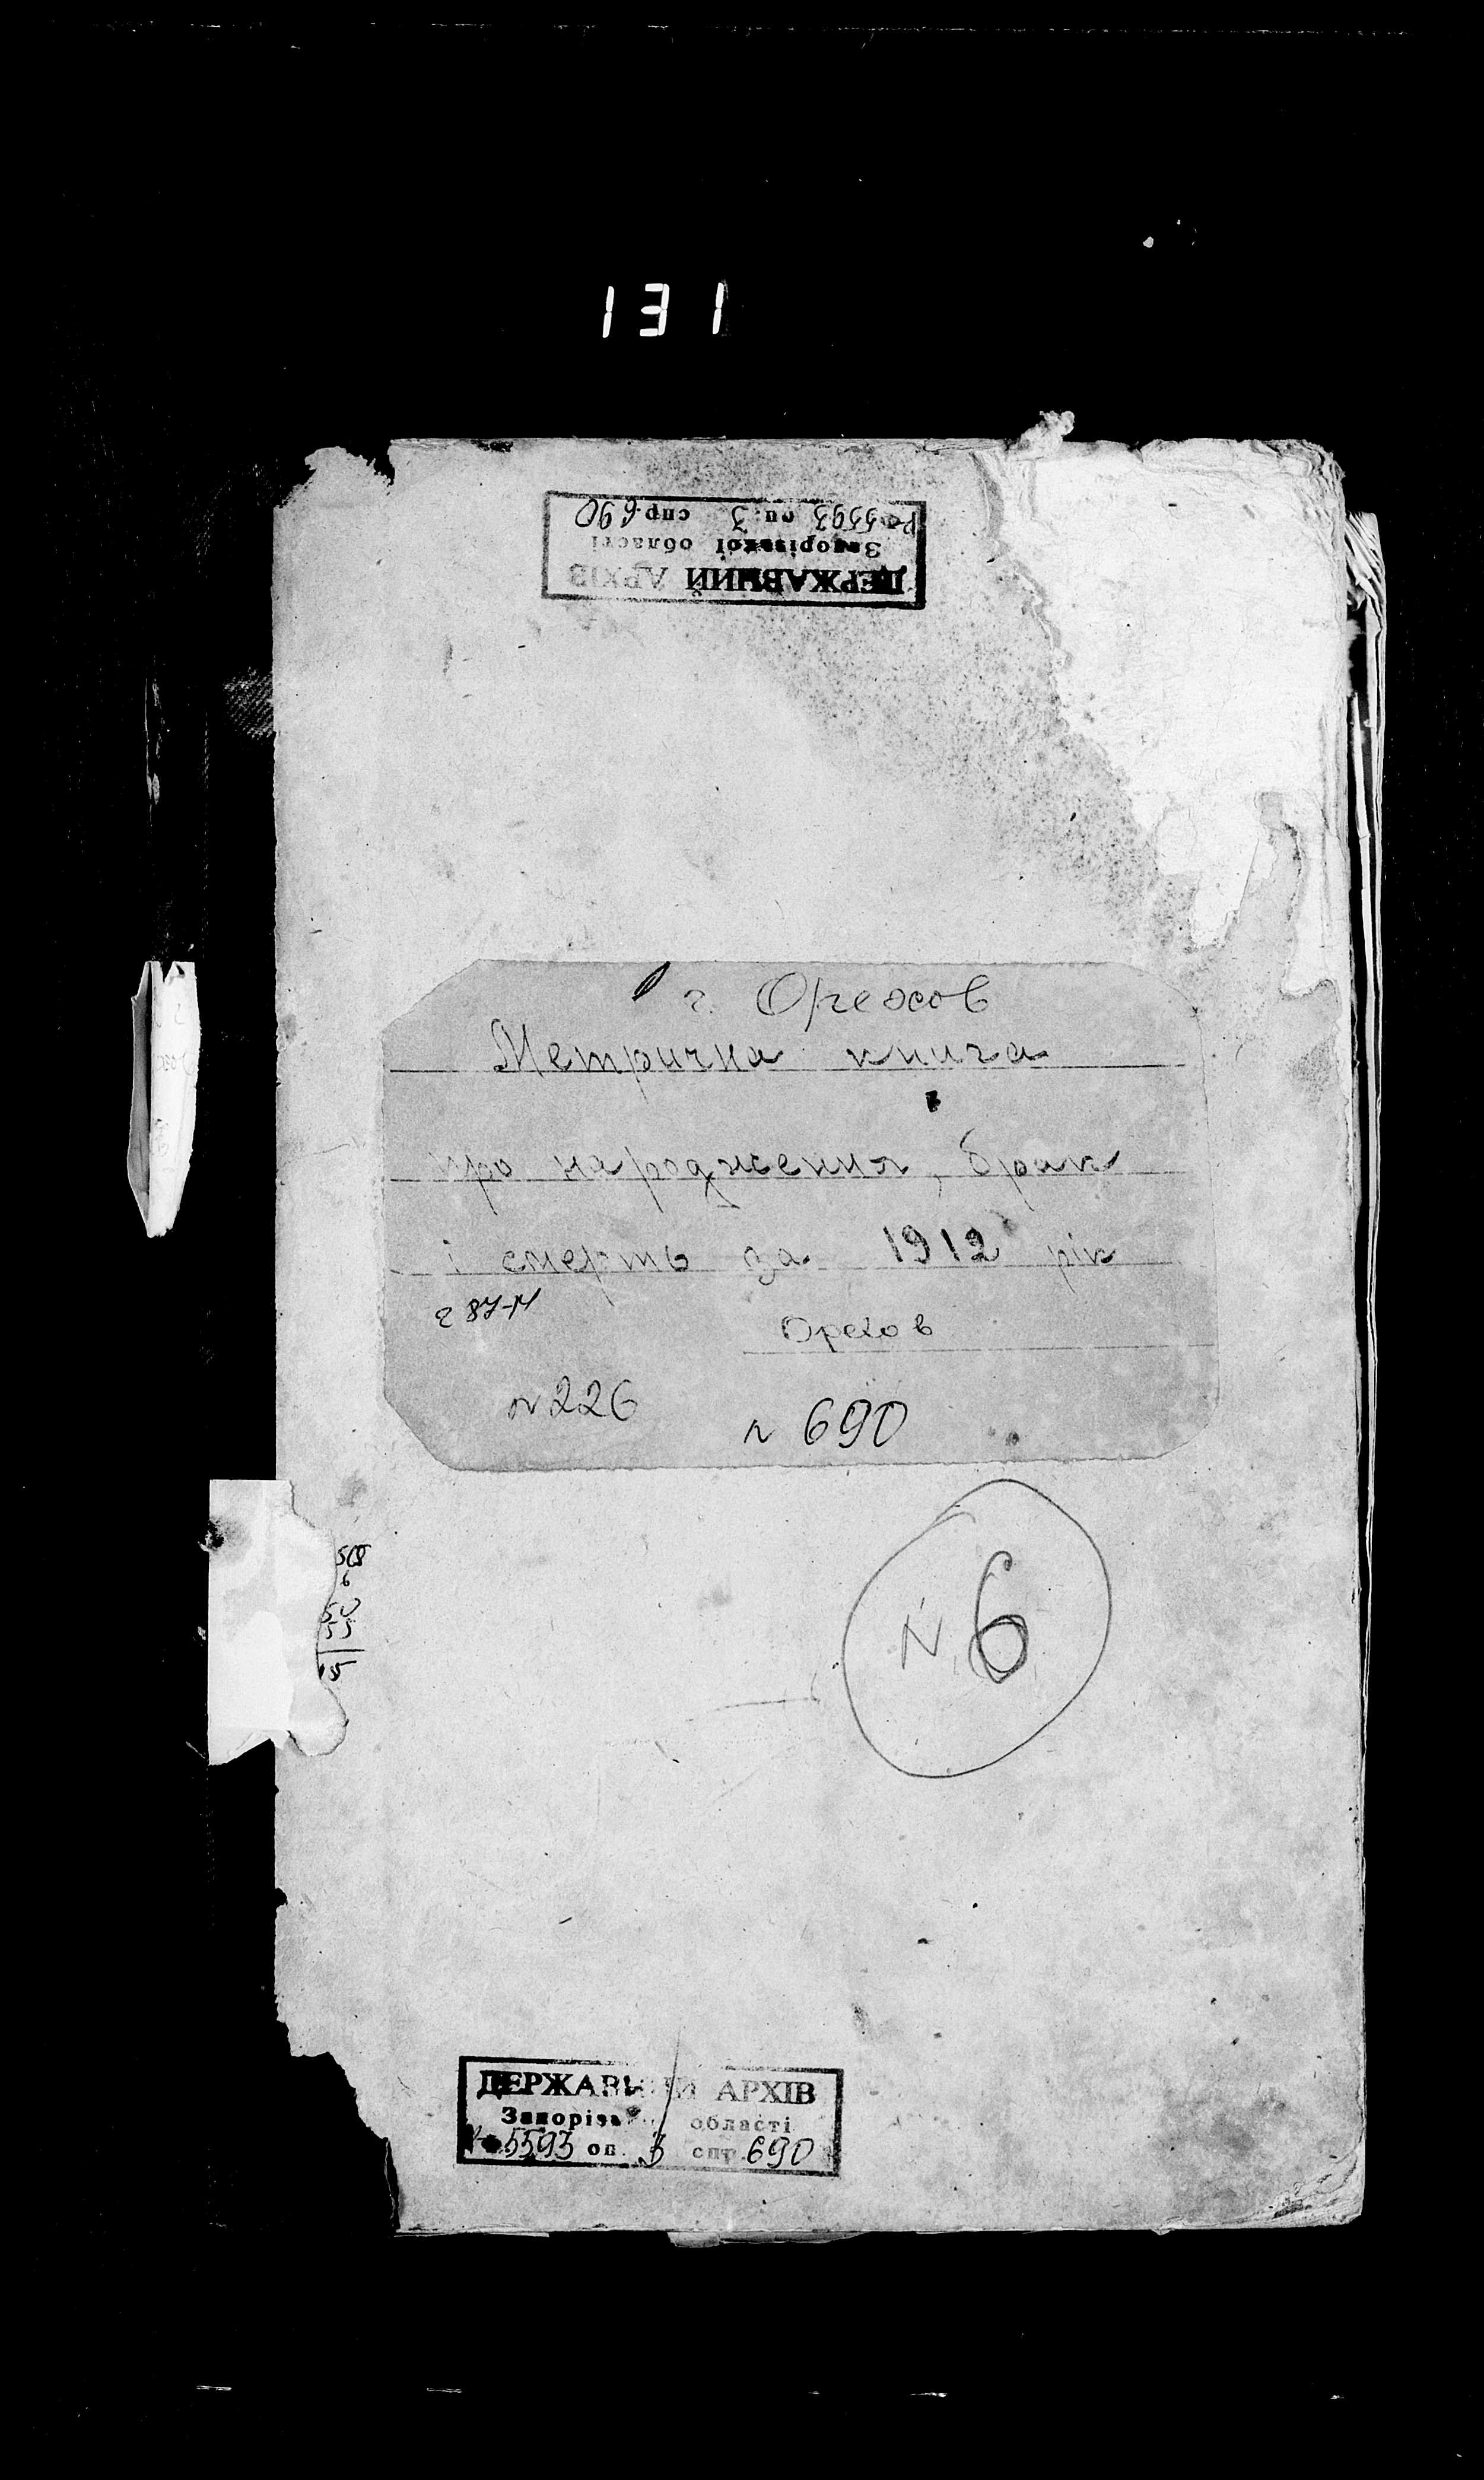 131
Р-5593 оп. 3 спр. 690
Запорізької області
ДЕРЖАВНИЙ АРХІВ
г. Орехов
Метрична книга
про народження, брак
і смерть за 1912 рік
Орехов
№ 226
№ 690
№ 6
ДЕРЖАВНИЙ АРХІВ
Запорізької області
Р-5593 оп. 3 спр. 690